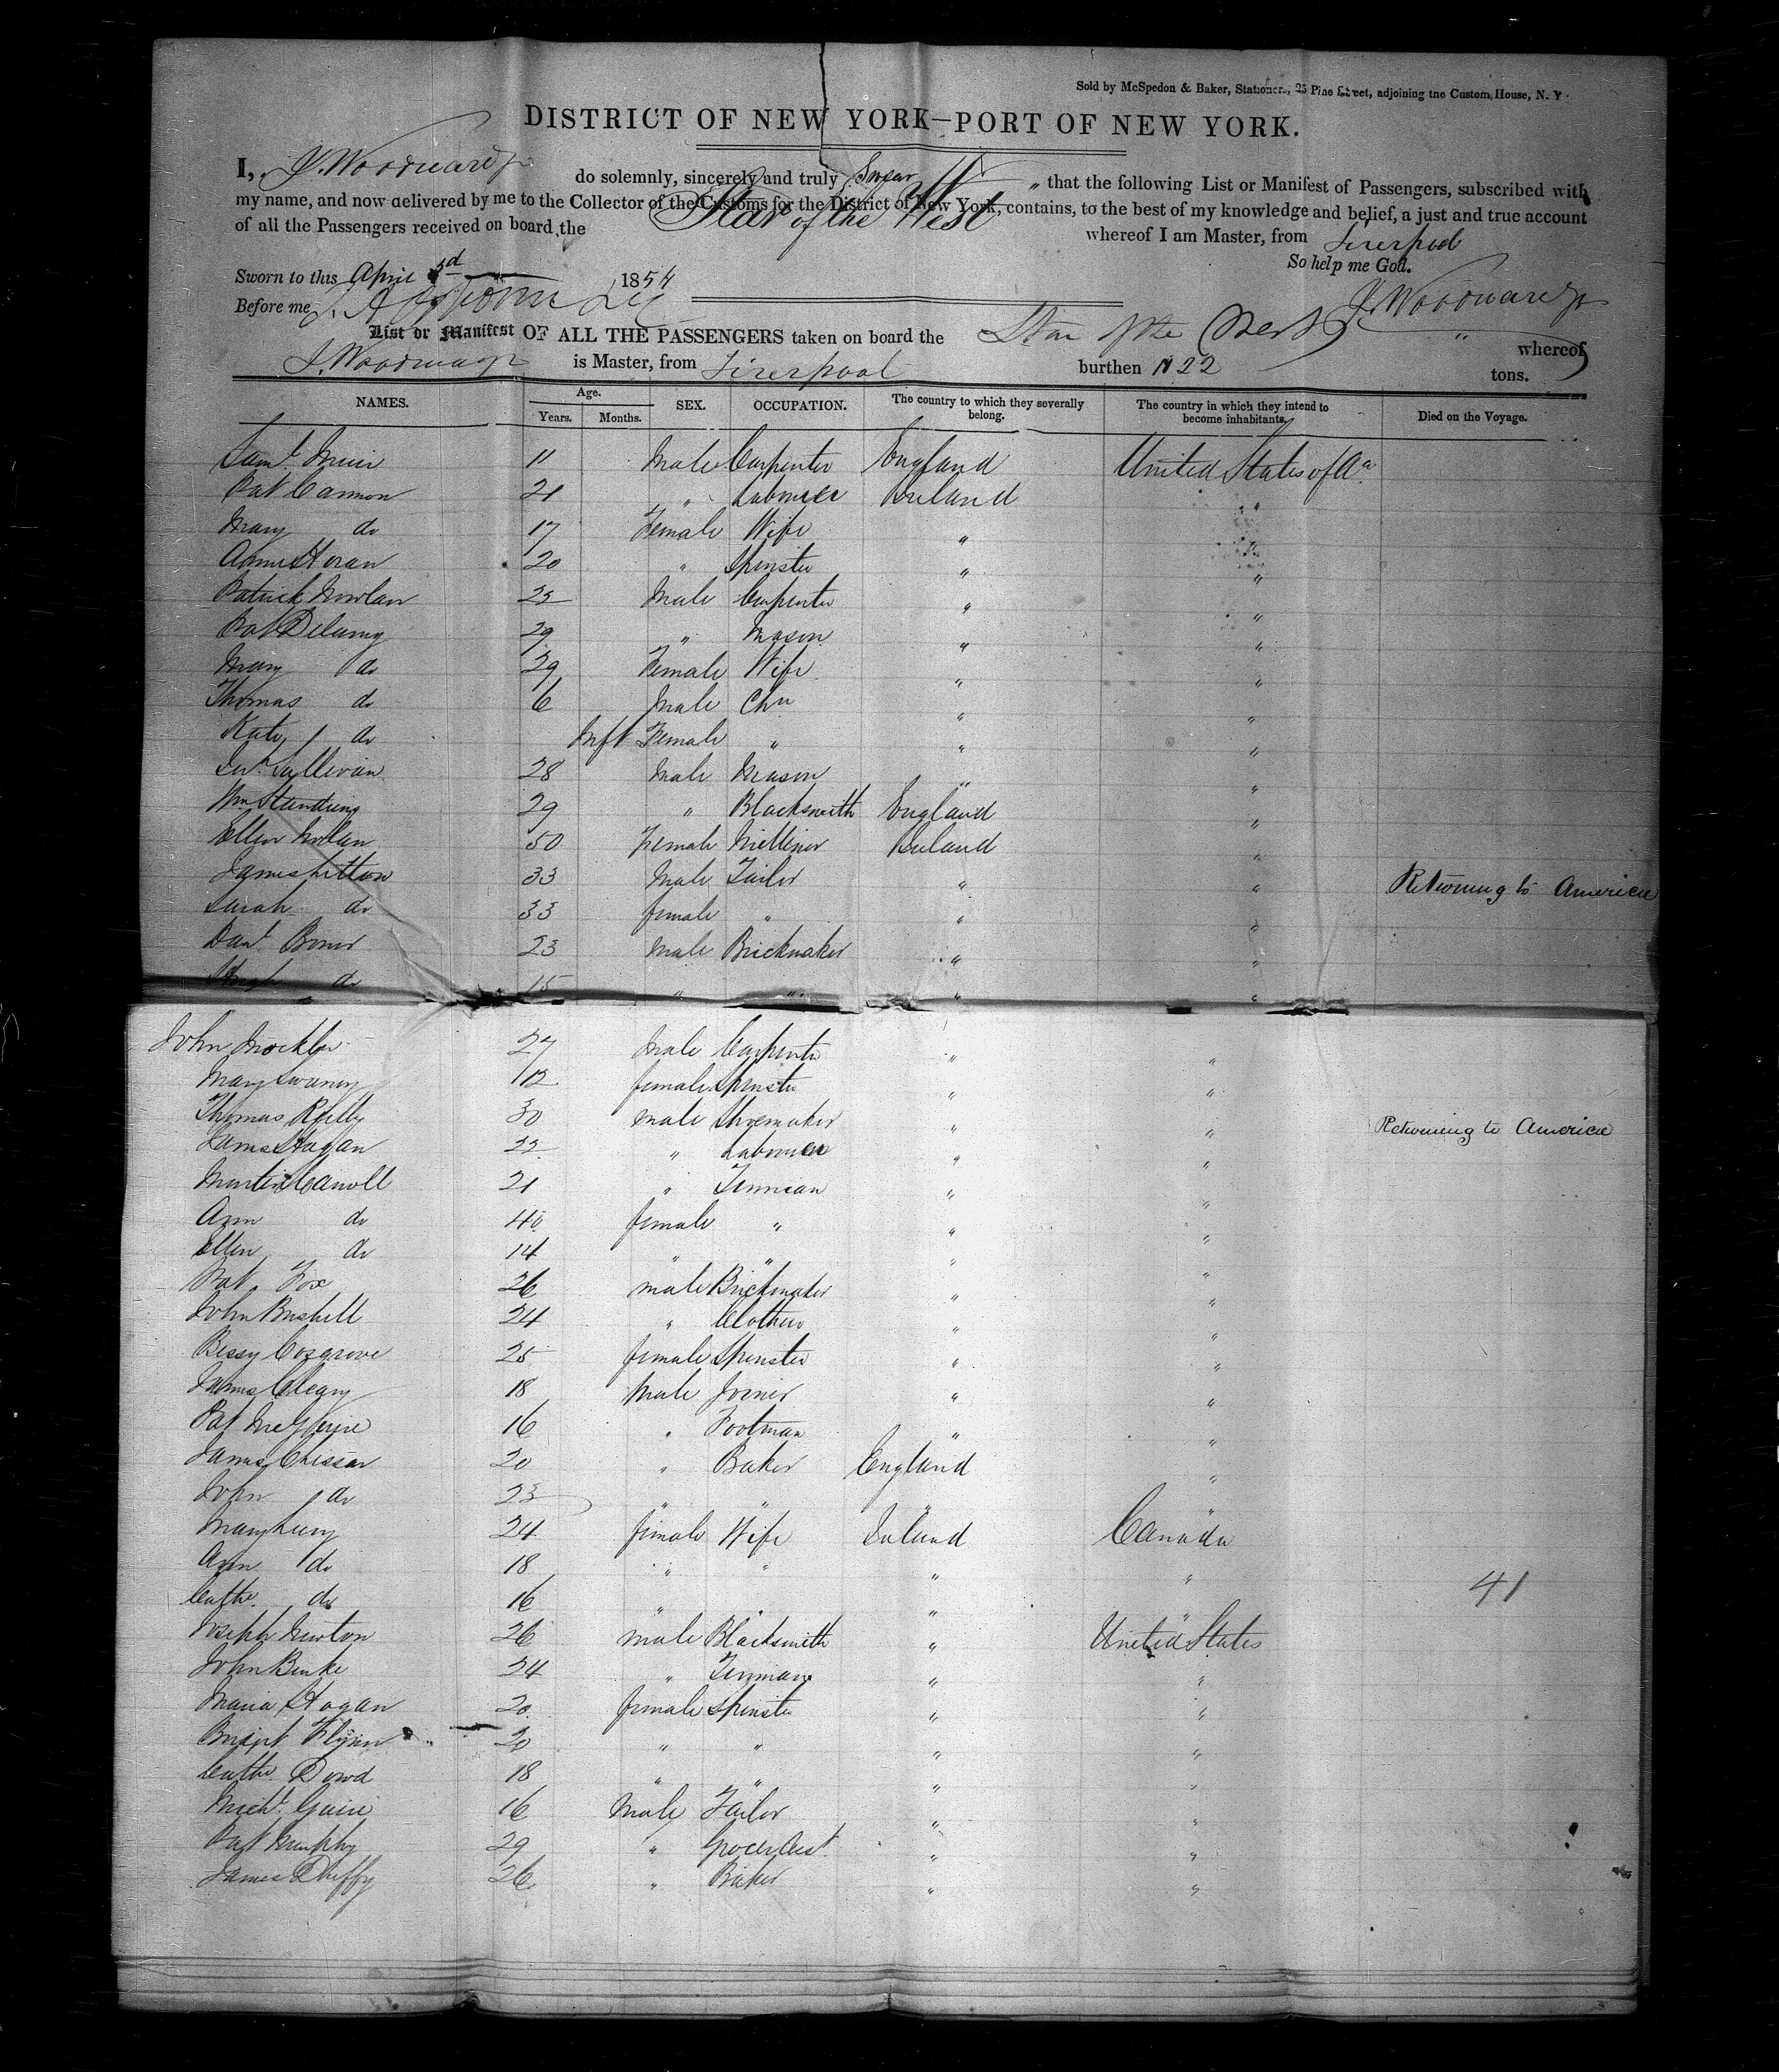 Sold by McSpedon & Baker, Stationers, 25 Pine Street, adjoining the Custom House, N. Y.
DISTRICT OF NEW YORK—PORT OF NEW YORK.
I, J. Woodward Jr do solemnly, sincerely and truly Swear that the following List or Manifest of Passengers, subscribed with
my name, and now delivered by me to the Collector of the Customs for the District of New York, contains, to the best of my knowledge and belief, a just and true account
of all the Passengers received on board the Star of the West whereof I am Master, from Liverpool
So help me God.
Sworn to this April 3d 1854
Before me J. Woodward Jr
List or Manifest OF ALL THE PASSENGERS taken on board the Star of the West whereof
J. Woodward Jr is Master, from Liverpool burthen 1122 tons.
NAMES. Age. Years. Months. SEX. OCCUPATION. The country to which they severally belong. The country in which they intend to become inhabitants. Died on the Voyage.
Saml. Muir 11 Male Carpenter England United States of Aa.
Pat Cannon 21 " Labourer Ireland "
Mary do 17 Female Wife " "
Anne Horan 20 " Spinster " "
Patrick Nowlan 23 Male Carpenter " "
Pat Delany 29 " Mason " "
Mary do 29 Female Wife " "
Thomas do 6 Male Chn " "
Kate do Inft Female " " "
Sullivan 28 Male Mason " "
Wm Standring 29 " Blacksmith England "
Ellen Nolan 50 Female Milliner Ireland "
James Litton 33 Male Tailor " " Returning to America
Sarah do 33 female " " "
Danl Boner 23 Male Brickmaker " "
Hugh do 15 " " " "
John Mockler 27 Male Carpenter " "
Mary Swaney 12 female Spinster " "
Thomas Reilly 30 male Shoemaker " " Returning to America
James Hagan 22 " Labourer " "
Martin Carroll 21 " " "
Ann do 40 female " " "
Ellen do 14 " " " "
Pat Fox 26 male Brickmaker " "
John Bushell 24 " Clothier " "
Bessy Cosgrove 25 female Spinster " "
James Cleary 18 Male Joiner " "
Pat McGuire 16 " Footman " "
James Chessar 20 " Baker England "
John do 23 " " " "
Mary Leery 24 female Wife Ireland Canada
Ann do 18 " " " "
Cathe. do 16 " " " " 41
Joseph Newton 26 male Blacksmith " United States
John Burke 24 " " "
Maria Hogan 20 female Spinster " "
Bridgt Flynn 20 " " " "
Cathe Dowd 18 " " " "
Michl. Guire 16 Male Tailor " "
Pat Murphy 29 " Grocer Asst. " "
James Duffy 26 " Baker " "